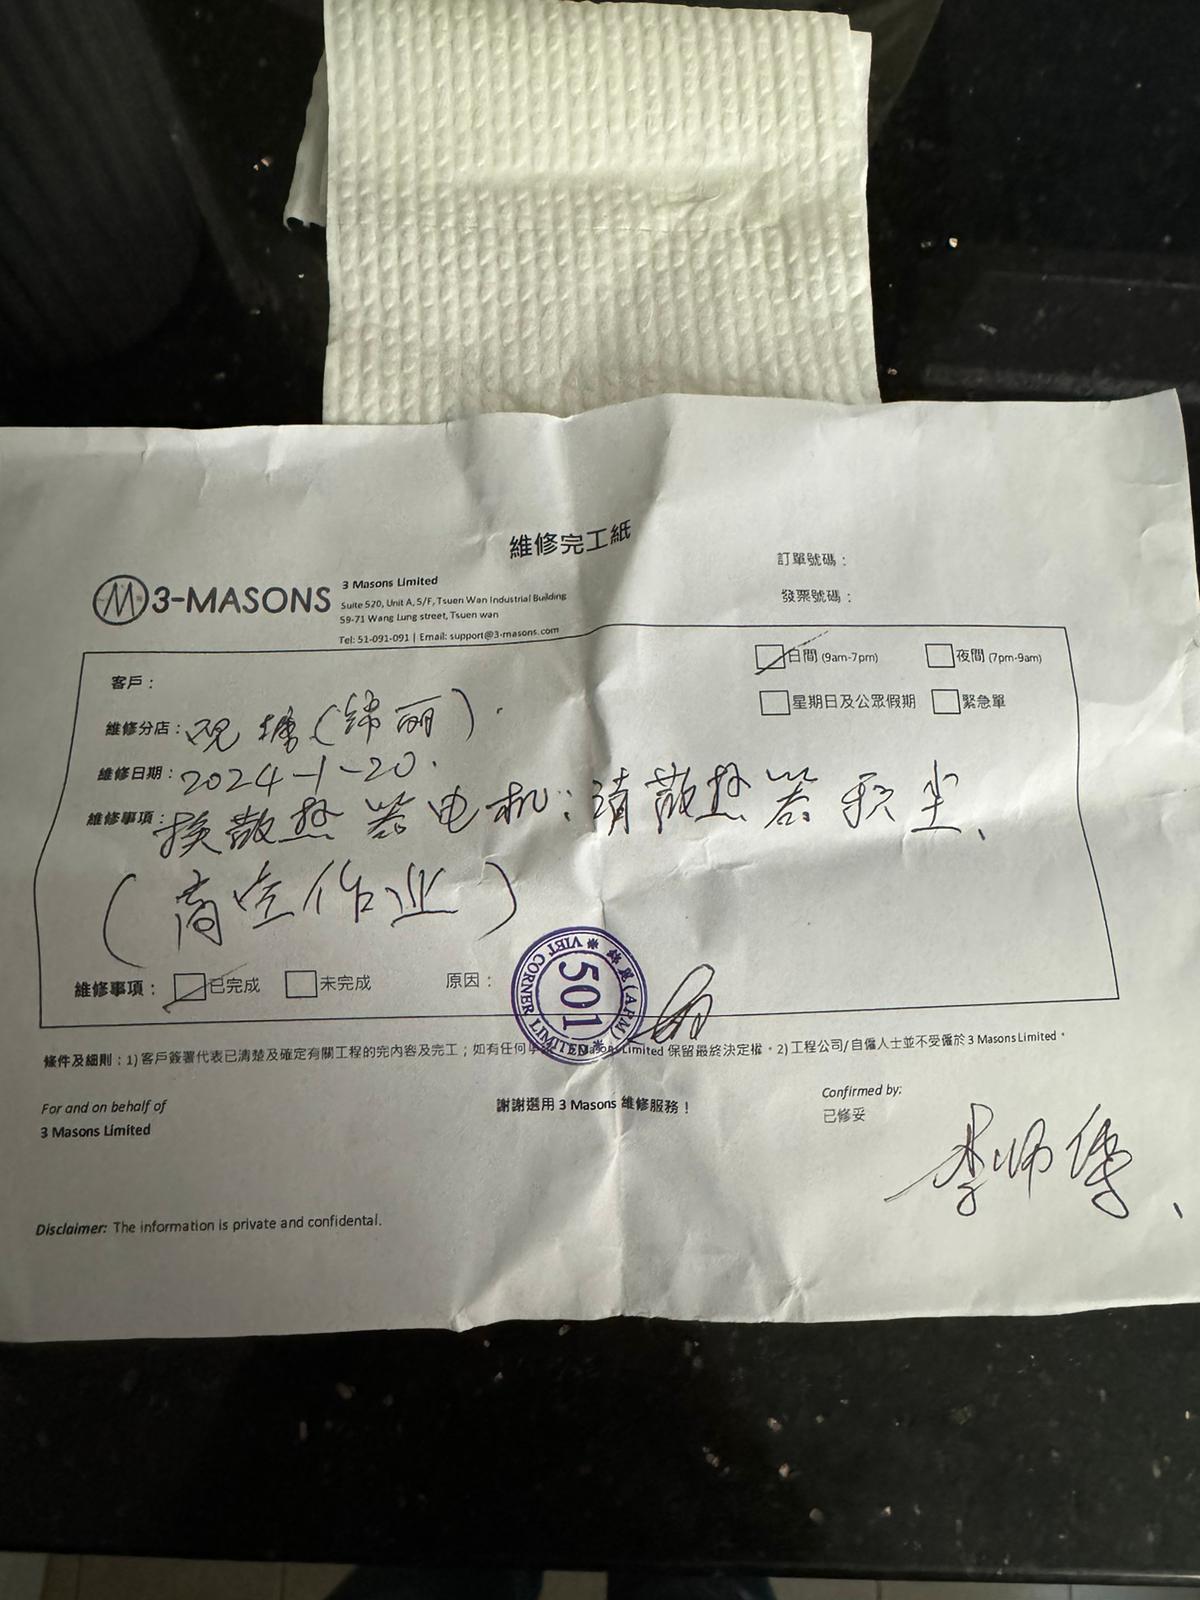 維修完工紙
訂單號碼：
發票號碼：
3-MASONS
3 Masons Limited
Suite 520, Unit A, 5/F, Tsuen Wan Industrial Building
59-71 Wang Lung street, Tsuen wan
Tel: 51-091-091 | Email: support@3-masons.com
日間 (9am-7pm)
夜間 (7pm-9am)
星期日及公眾假期
緊急單
客戶：
維修分店：
維修日期：2024-1-20.
維修事項：换散热器电机；清散热器积尘、
(高空作业)
維修事項：
已完成
未完成
原因：
VIET CORNER LIMITED
(APM)
501
條件及細則：1) 客戶簽署代表已清楚及確定有關工程的完內容及完工；如有任何 Limited 保留最終決定權。2) 工程公司/自僱人士並不受僱於 3 Masons Limited。
For and on behalf of
3 Masons Limited
謝謝選用 3 Masons 維修服務！
Confirmed by:
已修妥
李师傅、
Disclaimer: The information is private and confidental.